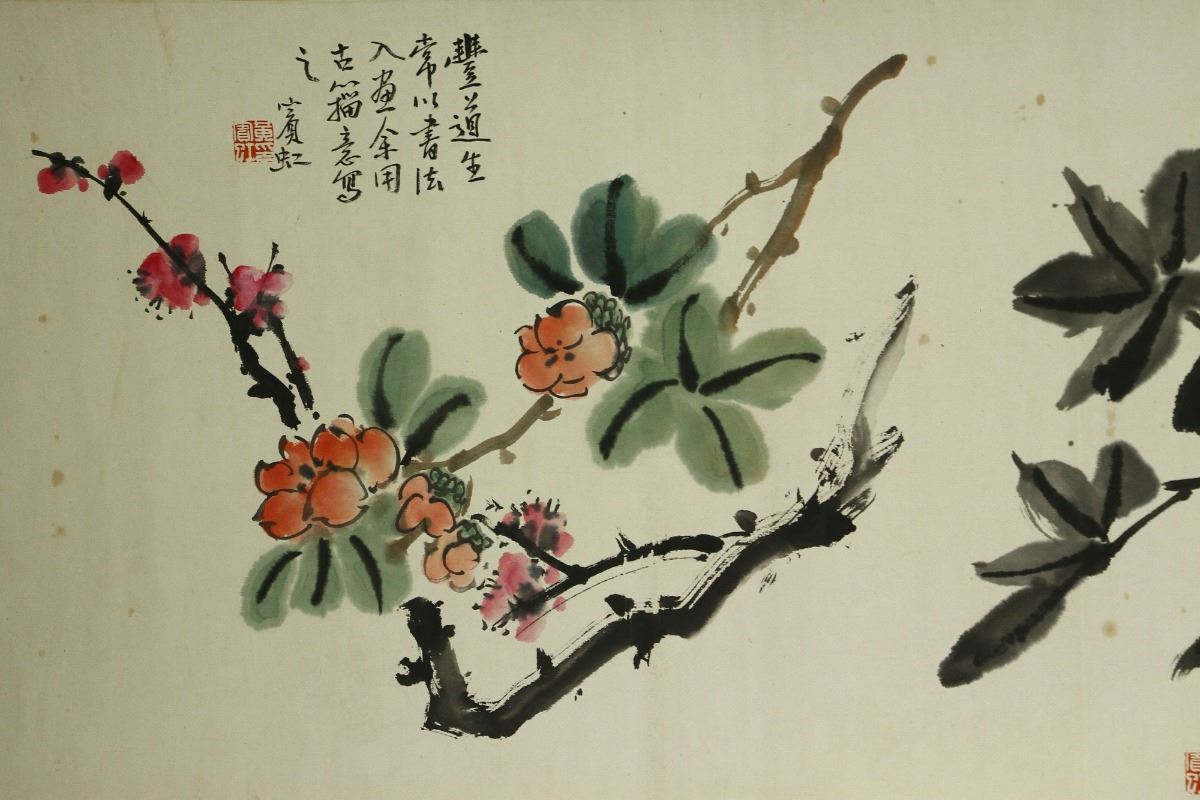 豐道生
常以書法
入畫余用
古籀意寫
之
賓虹